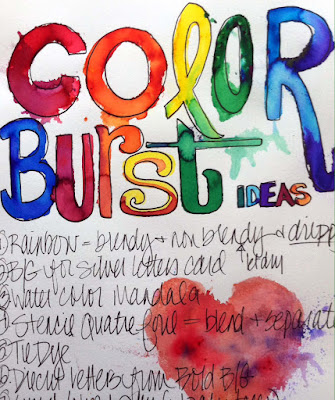 COLOR
BURST IDEAS
Rainbow = blendy + non blendy + dripp
B/G for silver letters card
Water color Mandala
Stencil = blend + separat
Tie Dye
Diecut letters from Bold B/G